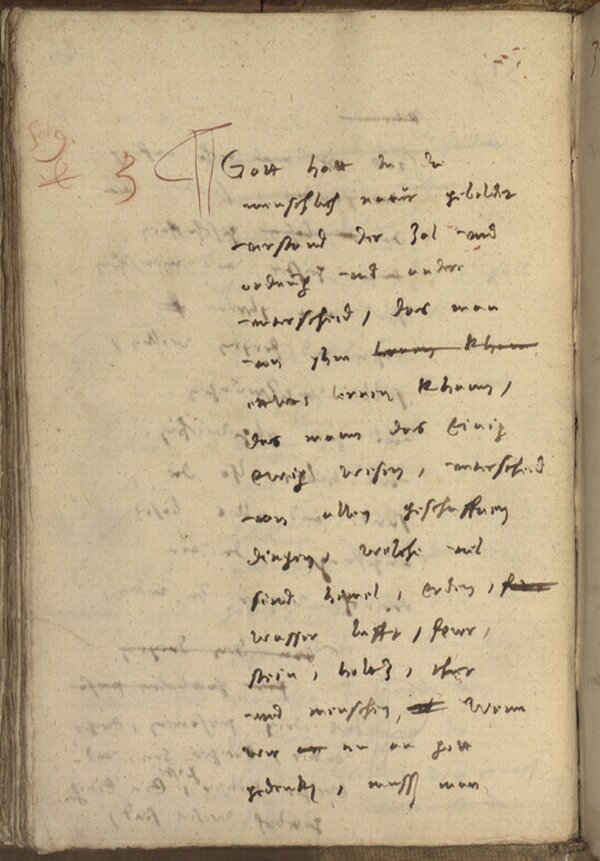 3 ¶ Gott hatt in die
menschlich natur gebildet
verstand der Zal vnd
ordnung vnd andere
vnterscheid, das man
von yhm lernen khan
etwas lernen khann,
das mann das Einig
Ewig wesen, vnterscheid
von allen geschaffnen
dingen, welche viel
sind himel, erden,
wasser lufft, fewr,
stein, holtz, thier
vnd menschen, Wenn
wir nu an gott
gedenken, muss man